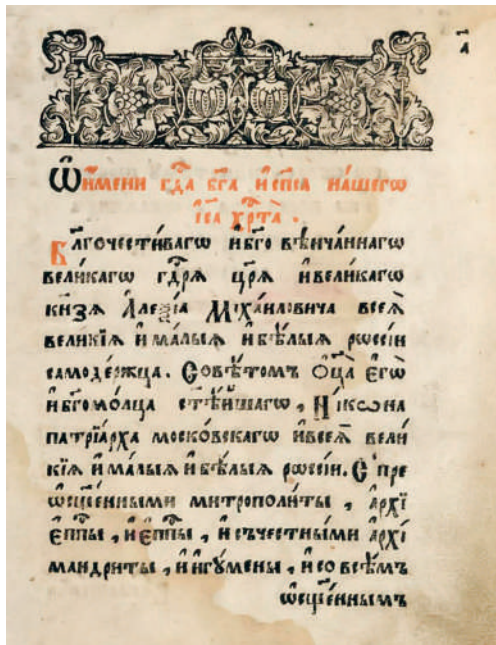 а҃
Ѡ҆ и҆мени гдⷭ҇а бг҃а и҆ сп҃са на́шегѡ
і҆и҃са хрⷭ҇та̀ .
Бл҃гочести́вагѡ и҆ бг҃о вѣнча́ннагѡ
вели́кагѡ гдⷭ҇рѧ цр҃ѧ и҆ вели́кагѡ
кн҃зѧ А҆леѯі́а Мїха́иловича всеѧ̀
вели́кїѧ и҆ ма́лыѧ и҆ бѣ́лыѧ рѡсс́іи
самоде́ржца. Совѣ́томъ Ѻ҆ц҃а̀ є҆гѡ̀
и҆ бг҃омо́лца ст҃ѣ́йшагѡ , Ні́кѡна
патрїа́рха моско́вскагѡ и҆ всеѧ̀ вели́
кїѧ и҆ ма́лыѧ и҆ бѣ́лыѧ рѡсс́іи. С пре
ѡ҆сщ҃е́нными митрополи́ты , а҆рхї
є҆пⷭ҇пы , и҆ є҆пⷭ҇пы , и҆ съ честны́ми а҆рхї
мандри́ты , и҆ и҆гу́мены , и҆ со всѣ́мъ
ѡ҆сщ҃е́ннымъ